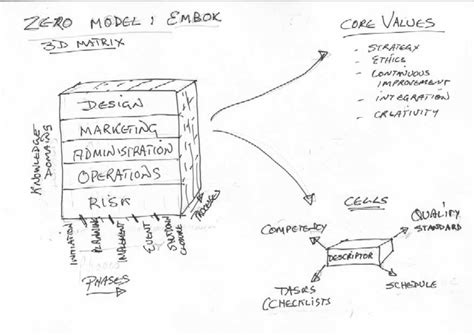 ZERO MODEL: EMBOK
3D MATRIX
CORE VALUES
- STRATEGY
- ETHICS
- CONTINUOUS
IMPROVEMENT
- INTEGRATION
- CREATIVITY
KNOWLEDGE
DOMAINS
DESIGN
MARKETING
ADMINISTRATION
OPERATIONS
RISK
PROCESSES
INITIATION
PLANNING
IMPLEMENT
EVENT
CLOSURE
PHASES
CELLS
COMPETENCY
QUALITY
STANDARD
DESCRIPTOR
TASKS
(CHECKLISTS
SCHEDULE